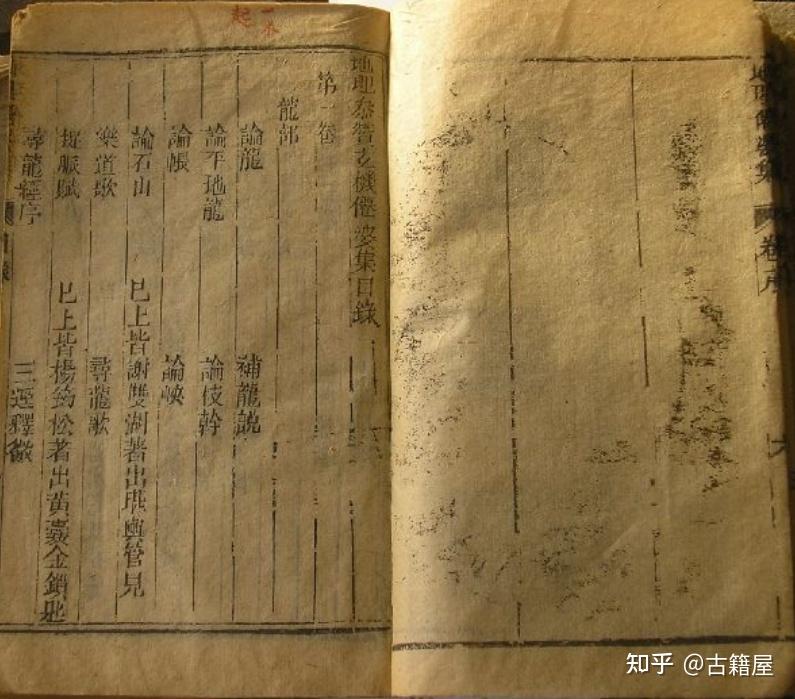 地理僊婆集 卷序
地理叅贊玄機僊婆集目錄
第一卷
龍部
論龍 補龍說
論平地龍 論枝幹
論帳 論峽
論石山 已上皆謝雙湖著出堪輿管見
樂道歌 尋龍歌
捉脈賦 已上皆楊筠松著出黃囊金鎖匙
尋龍經序 三逕釋微
知乎 @古籍屋